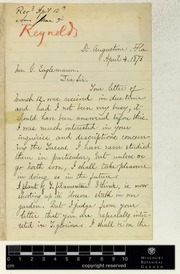 Recd Apl 12th
Ans
Reynolds
St. Augustine, Fla
April 4, 1878
Dr. G. Engelmann,
Dear Sir,
Your letter of
March 12, was received in due time
and had I not been very busy, it
would have been answered before this.
I was much interested in your
inquiries and descriptions concerning
the Yuccas. I have never studied
them in particular, but unless
my forth coming, I shall take pleasure
in doing in the future
I think Y. filamentosa I think, is now
sending up its flower stalk in my
garden. but I judge from your
letter that you are especially interested
in Y. gloriosa. I shall be on the
MISSOURI
BOTANICAL
GARDEN